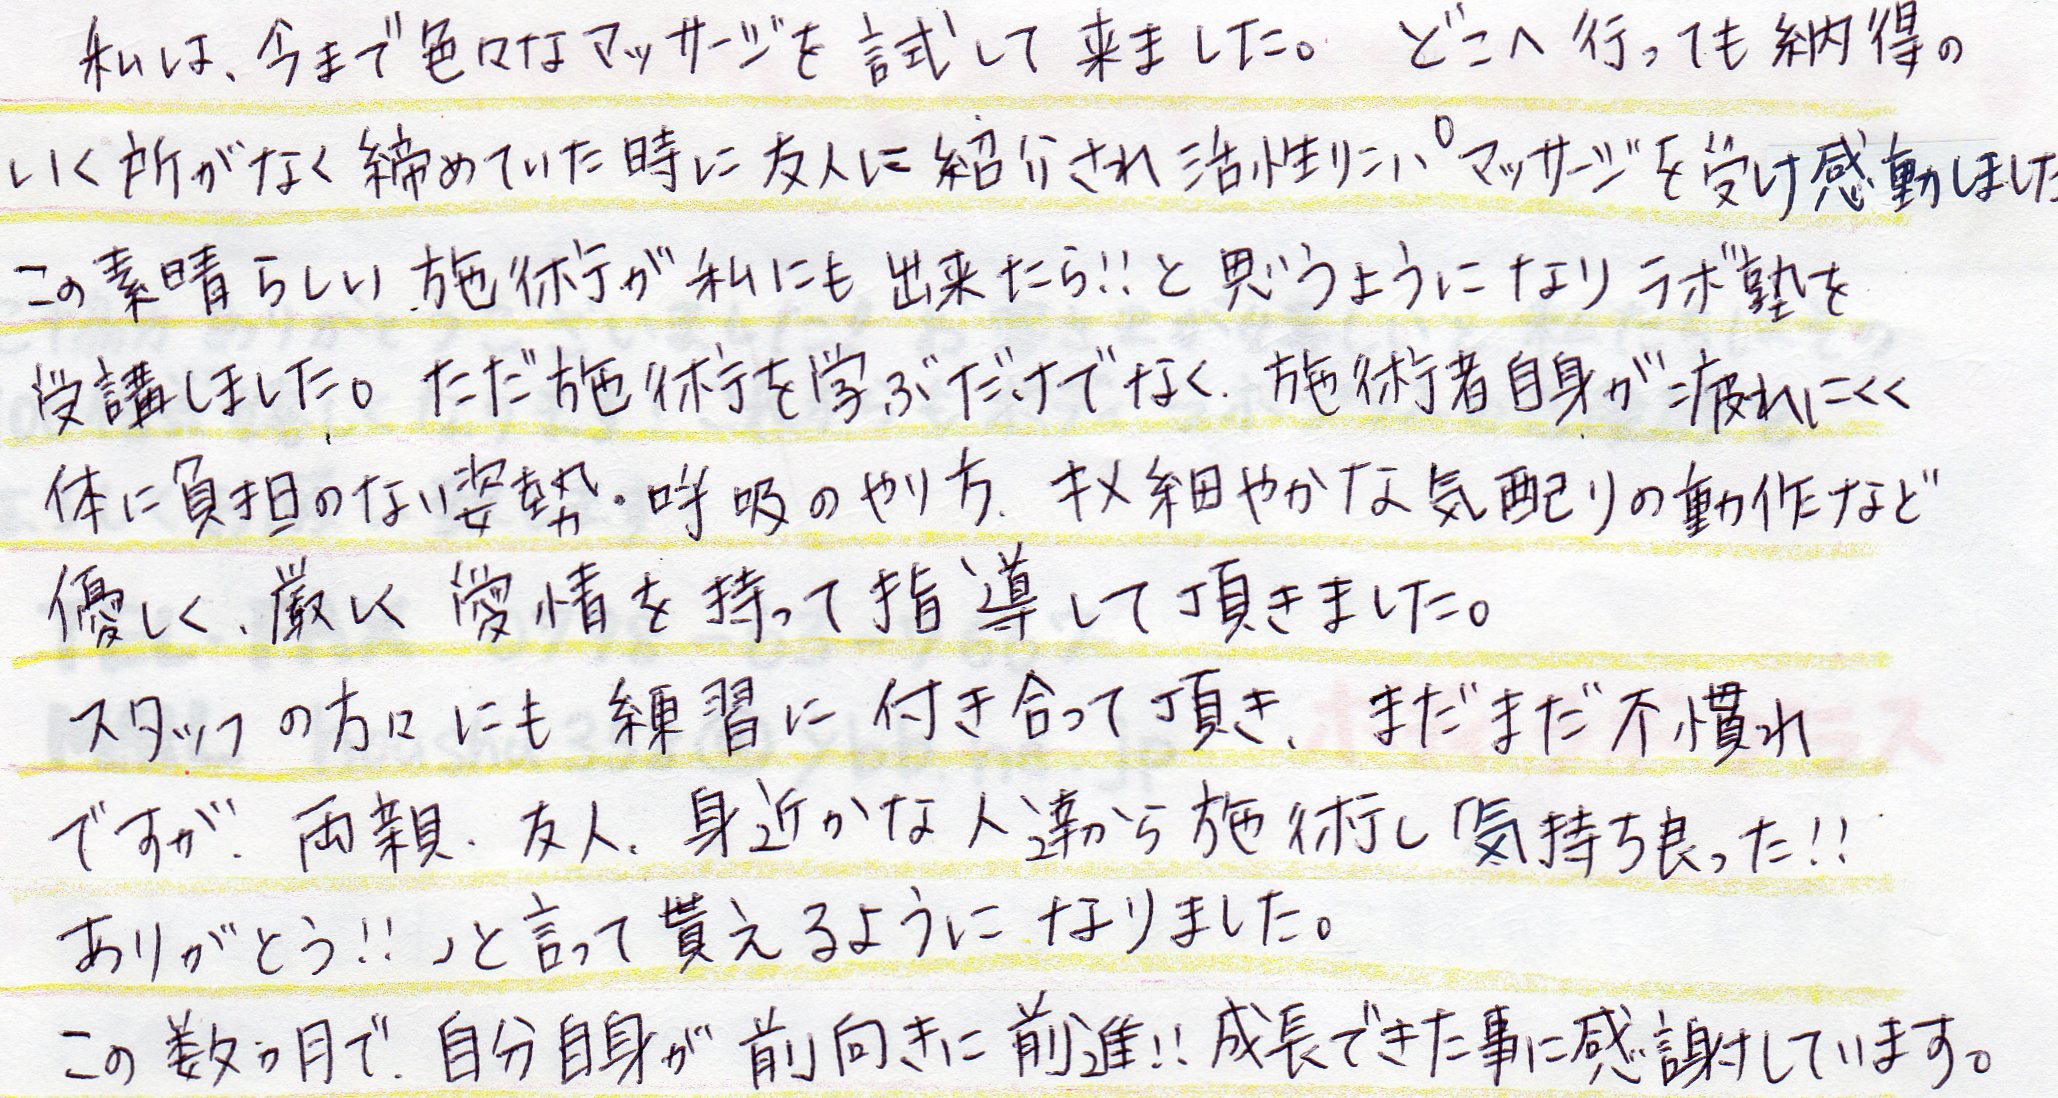 私は、今まで色々なマッサージを試して来ました。どこへ行っても納得の
いく所がなく締めていた時に友人に紹介され活性リンパマッサージを受け感動しました
この素晴らしい施術が私にも出来たら!!と思うようになりラボ塾を
受講しました。ただ施術を学ぶだけでなく、施術者自身が疲れにくく
体に負担のない姿勢・呼吸のやり方、キメ細やかな気配りの動作など
優しく、厳しく愛情を持って指導して頂きました。
スタッフの方々にも練習に付き合って頂き、まだまだ不慣れ
ですが、両親、友人、身近かな人達から施術し「気持ち良った!!
ありがとう!!」と言って貰えるようになりました。
この数ヵ月で、自分自身が前向きに前進!!成長できた事に感謝しています。